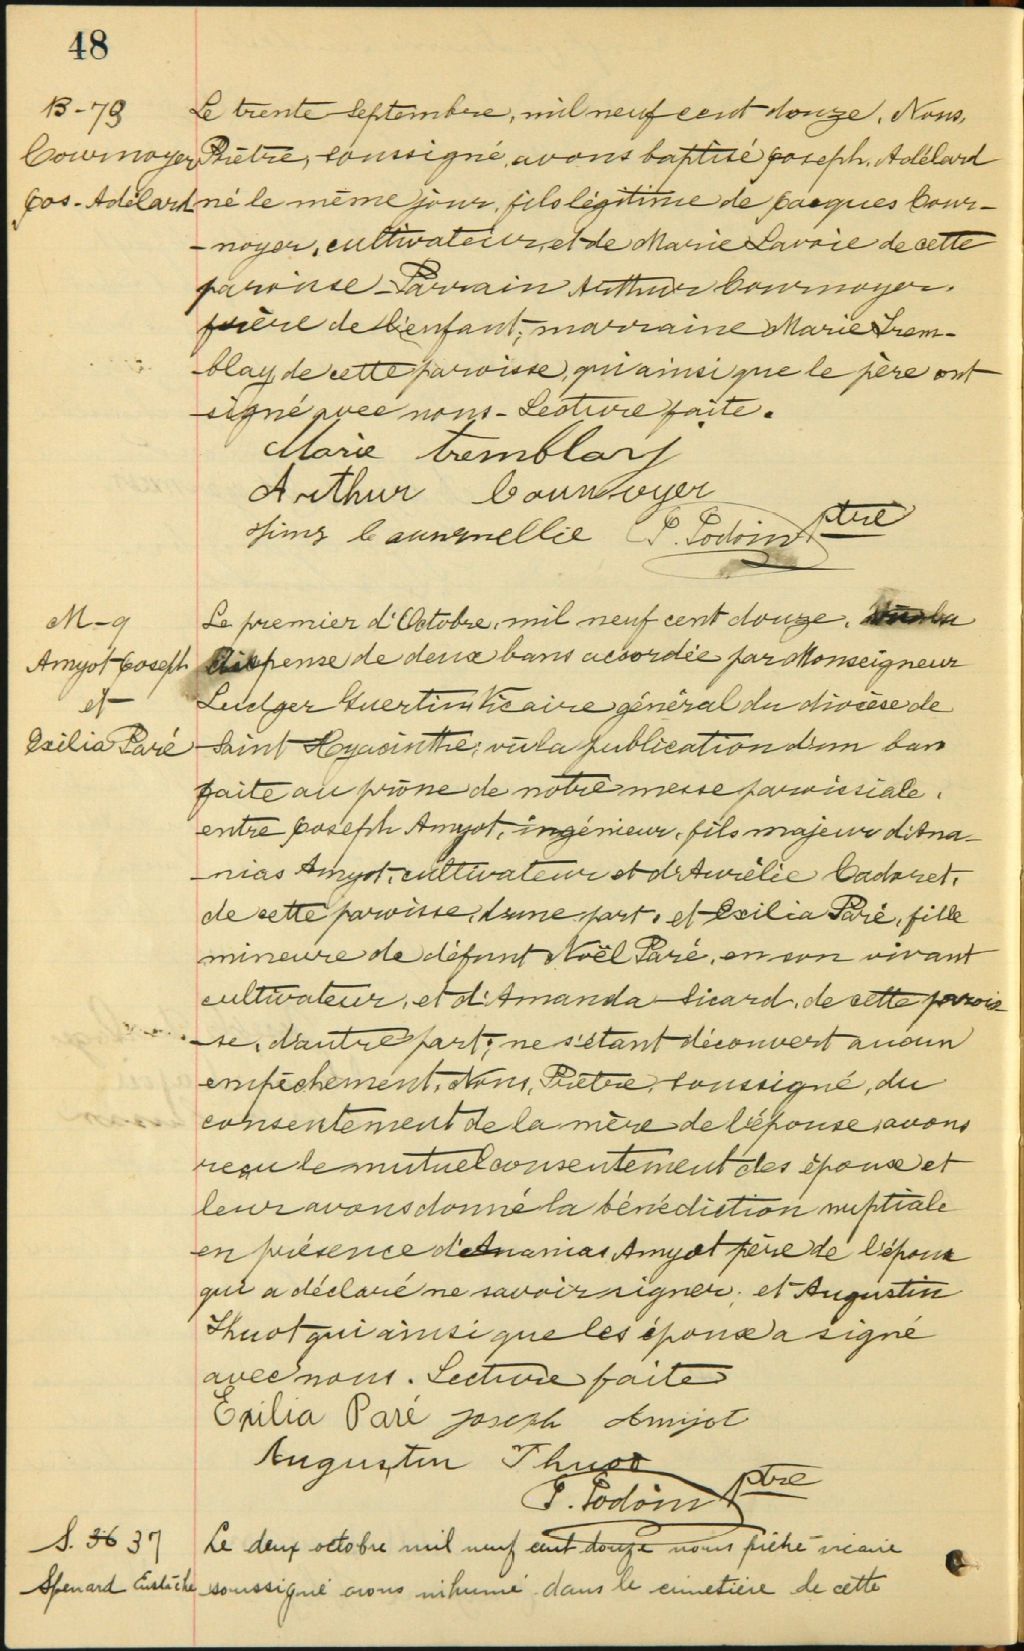 48
B-79
Cournoyer
Jos-Adélard
Le trente Septembre, mil neuf cent douze, Nous,
Prêtre, soussigné, avons baptisé Joseph, Adélard
né le même jour, fils légitime de Jacques Cour-
-noyer, cultivateur, et de Marie Lavoie de cette
paroisse - Parrain Arthur Cournoyer,
frère de l'enfant; marraine Marie Trem-
-blay, de cette paroisse, qui ainsi que le père ont
signé avec nous - Lecture faite.
Marie Tremblay
Arthur Cournoyer
P. Lodoin ptre
M-9
Amyot Joseph
et
Exilia Paré
Le premier d'Octobre, mil neuf cent douze, vu la
dispense de deux bans accordée par Monseigneur
Ludger Guertin Vicaire général du diocèse de
Saint Hyacinthe; vu la publication d'un ban
faite au prône de notre messe paroissiale,
entre Joseph Amyot, ingénieur, fils majeur d'Ana-
-nias Amyot, cultivateur et d'Aurélie Cadoret,
de cette paroisse, d'une part, et Exilia Paré, fille
mineure de défunt Noël Paré, en son vivant
cultivateur, et d'Amanda Sicard, de cette parois
-se, d'autre part; ne s'étant découvert aucun
empêchement, Nous, Prêtre, soussigné, du
consentement de la mère de l'épouse, avons
reçu le mutuel consentement des époux et
leur avons donné la bénédiction nuptiale
en présence d'Ananias Amyot père de l'époux
qui a déclaré ne savoir signer, et Augustin
Thuot qui ainsi que les époux a signé
avec nous. Lecture faite
Exilia Paré Joseph Amijot
Augustin Thuot
P. Lodoin ptre
S. 36 37
Spenard Eustache
Le deux octobre mil neuf cent douze nous prêtre vicaire
soussigné avons inhumé dans le cimetière de cette